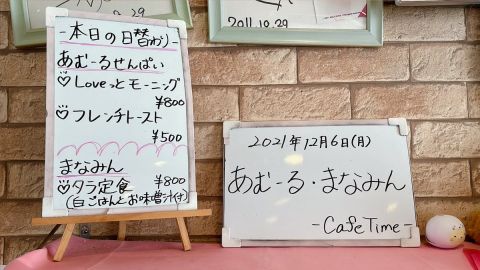 2011.10.29
-本日の日替わり-
あむーるせんぱい
♡Loveっとモーニング
¥800
♡フレンチトースト
¥500
まなみん
♡タラ定食 ¥800
(白ごはんとお味噌汁付)
2021年12月6日(月)
あむーる・まなみん
-CafeTime-